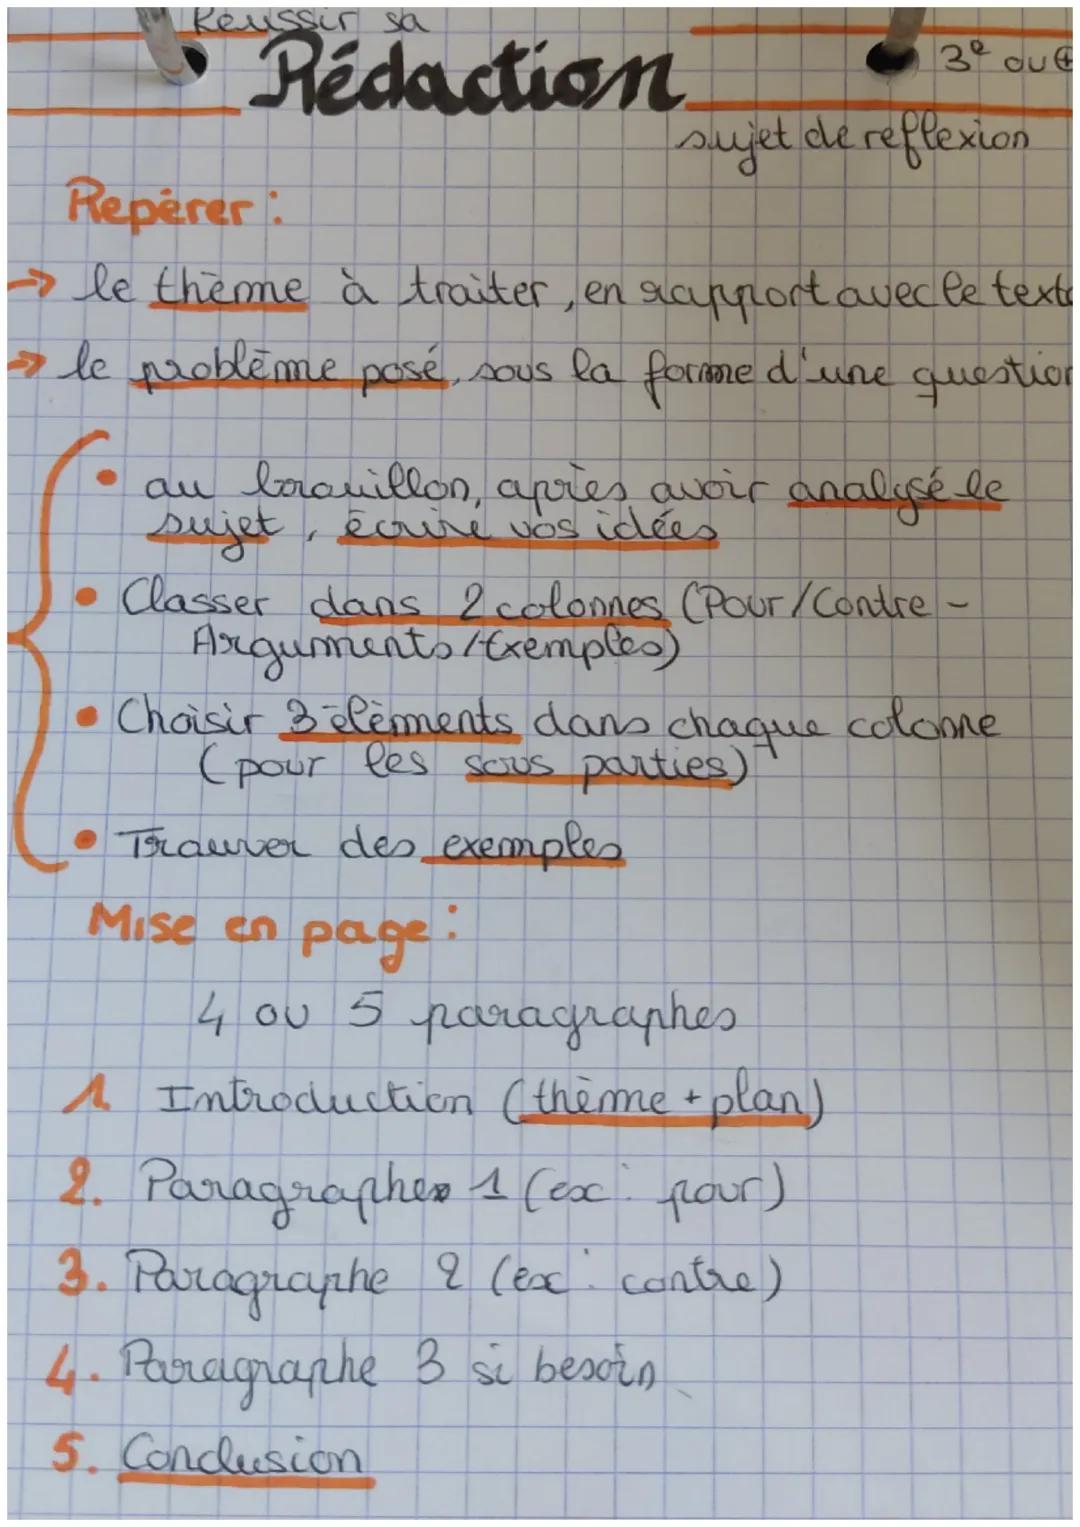 Réussir sa
Rédaction
3e ou +
sujet de reflexion
Repérer :
→ le thème à traiter, en rapport avec le texte
→ le problème posé, sous la forme d'une question
• au brouillon, après avoir analysé le
sujet, écrire vos idées
• Classer dans 2 colonnes (Pour/Contre -
Arguments/Exemples)
• Choisir 3 éléments dans chaque colonne
(pour les sous parties)
• Trouver des exemples
Mise en page :
4 ou 5 paragraphes
1. Introduction (thème + plan)
2. Paragraphe 1 (ex : pour)
3. Paragraphe 2 (ex : contre)
4. Paragraphe 3 si besoin
5. Conclusion